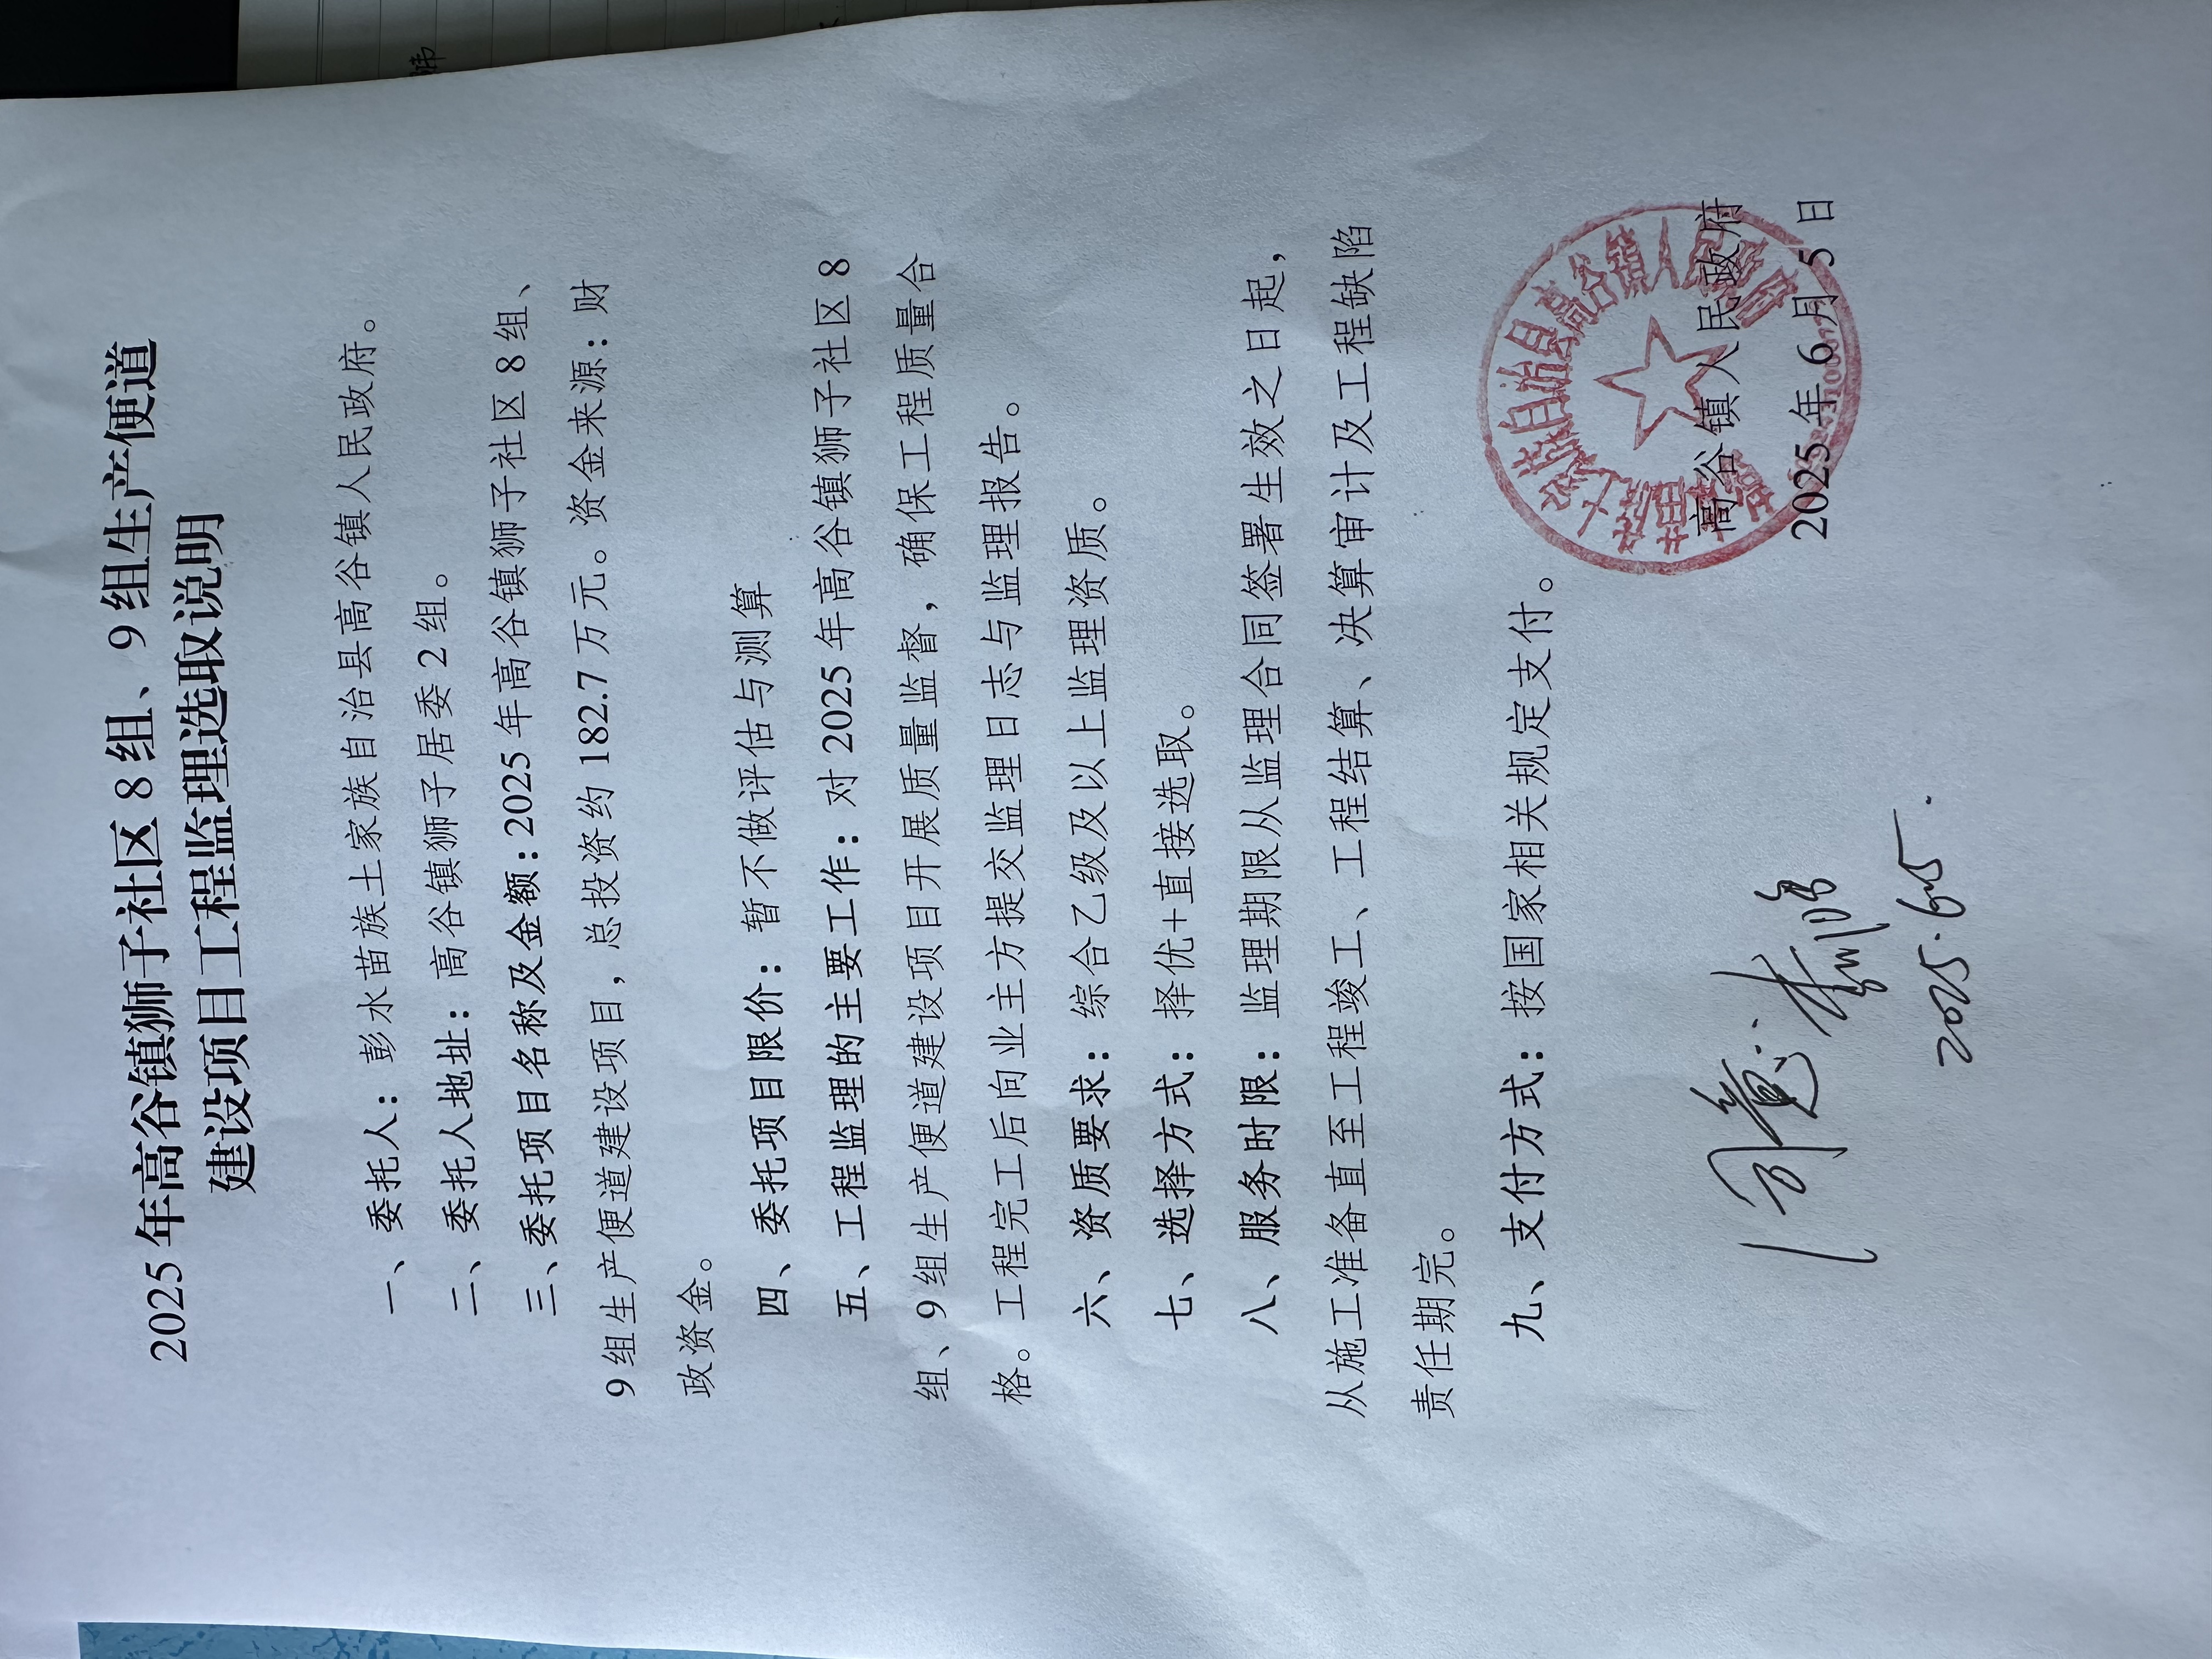 2025年高谷镇狮子社区8组、9组生产便道
建设项目工程监理选取说明
一、委托人：彭水苗族土家族自治县高谷镇人民政府。
二、委托人地址：高谷镇狮子居委2组。
三、委托项目名称及金额：2025年高谷镇狮子社区8组、
9组生产便道建设项目，总投资约182.7万元。资金来源：财
政资金。
四、委托项目限价：暂不做评估与测算
五、工程监理的主要工作：对2025年高谷镇狮子社区8
组、9组生产便道建设项目开展质量监督，确保工程质量合
格。工程完工后向业主方提交监理日志与监理报告。
六、资质要求：综合乙级及以上监理资质。
七、选择方式：择优+直接选取。
八、服务时限：监理期限从监理合同签署生效之日起，
从施工准备直至工程竣工、工程结算、决算审计及工程缺陷
责任期完。
九、支付方式：按国家相关规定支付。
高谷镇人民政府
2025年6月5日
同意
2025.6.5.